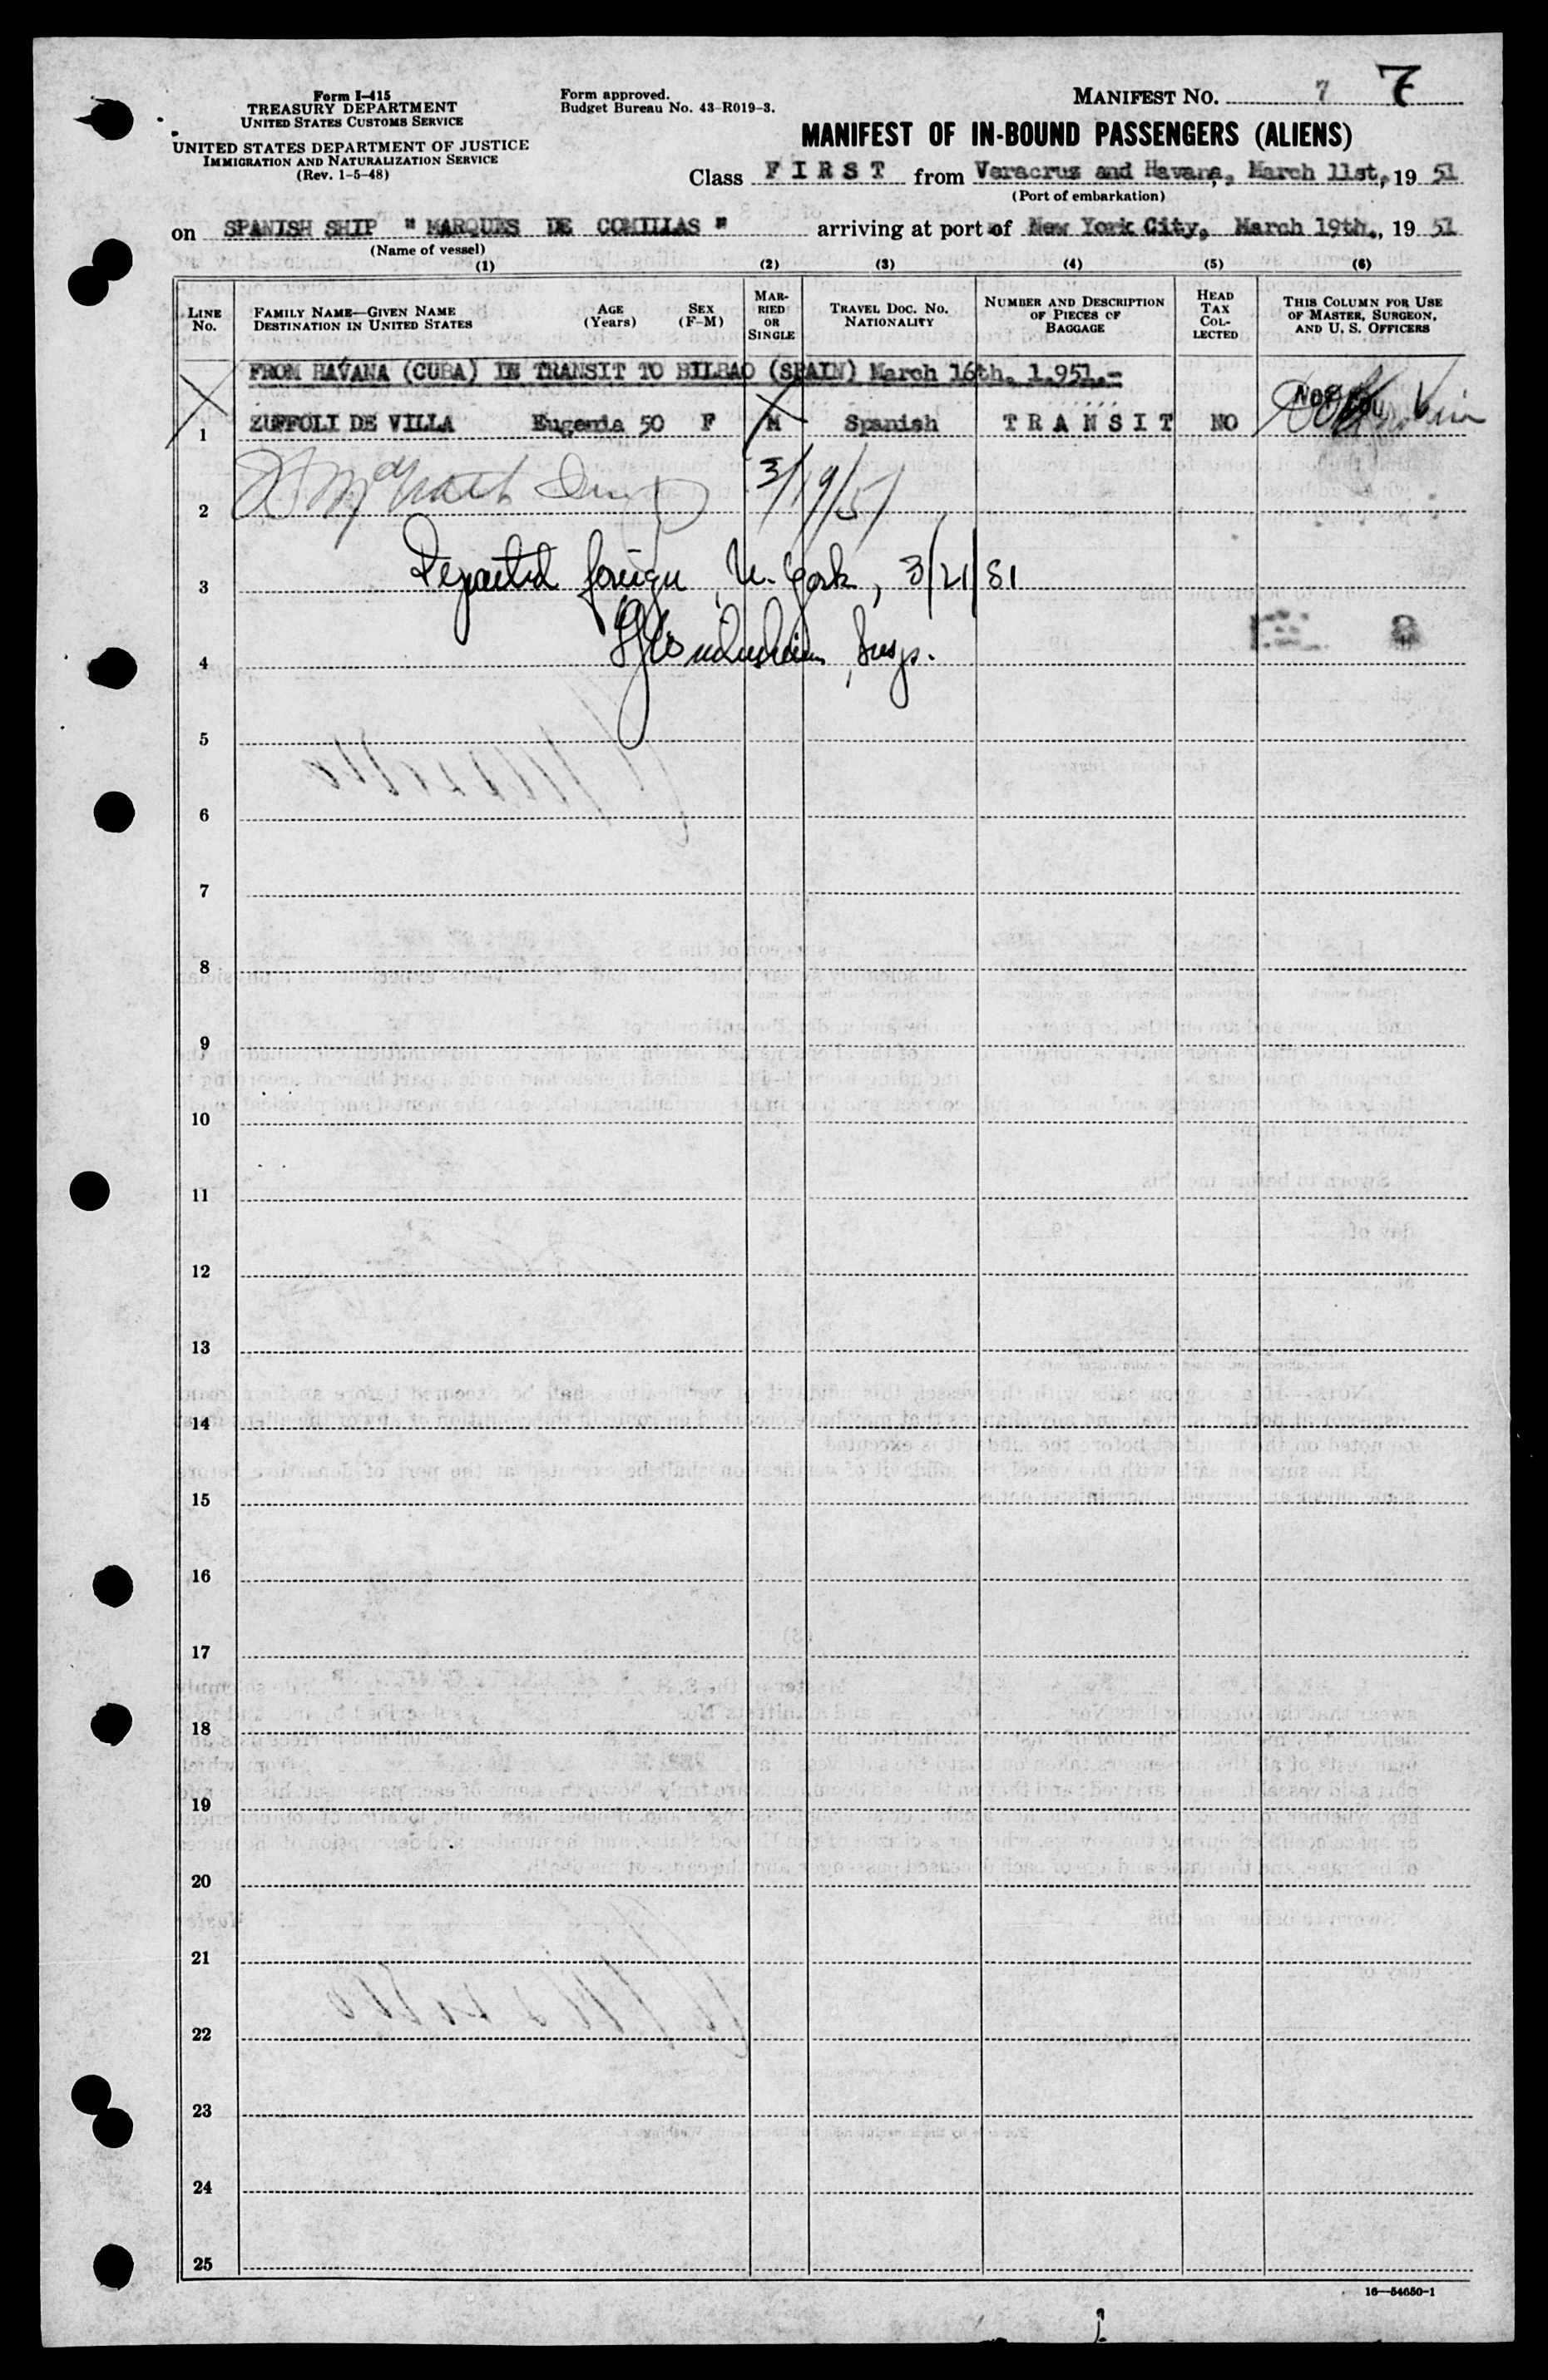 Form I-415
TREASURY DEPARTMENT
UNITED STATES CUSTOMS SERVICE
UNITED STATES DEPARTMENT OF JUSTICE
IMMIGRATION AND NATURALIZATION SERVICE
(Rev. 1-5-48)
Form approved.
Budget Bureau No. 43-R019-3.
MANIFEST NO. 7 7
MANIFEST OF IN-BOUND PASSENGERS (ALIENS)
Class F I R S T from Veracruz and Havana, March 11st, 19 51
(Port of embarkation)
on SPANISH SHIP " MARQUES DE COMILLAS " arriving at port of New York City, March 19th., 19 51
(Name of vessel)
(1) (2) (3) (4) (5) (6)
LINE No. FAMILY NAME—GIVEN NAME DESTINATION IN UNITED STATES AGE (Years) SEX (F-M) MARRIED OR SINGLE TRAVEL DOC. NO. NATIONALITY NUMBER AND DESCRIPTION OF PIECES OF BAGGAGE HEAD TAX COLLECTED THIS COLUMN FOR USE OF MASTER, SURGEON, AND U. S. OFFICERS
FROM HAVANA (CUBA) IN TRANSIT TO BILBAO (SPAIN) March 16th. 1.951.-
1 ZUFFOLI DE VILLA Eugenia 50 F M Spanish T R A N S I T NO
2 3/19/51
3 Departed foreign, N. York, 3/21/51
4 Insp.
5
6
7
8
9
10
11
12
13
14
15
16
17
18
19
20
21
22
23
24
25
16—54650-1